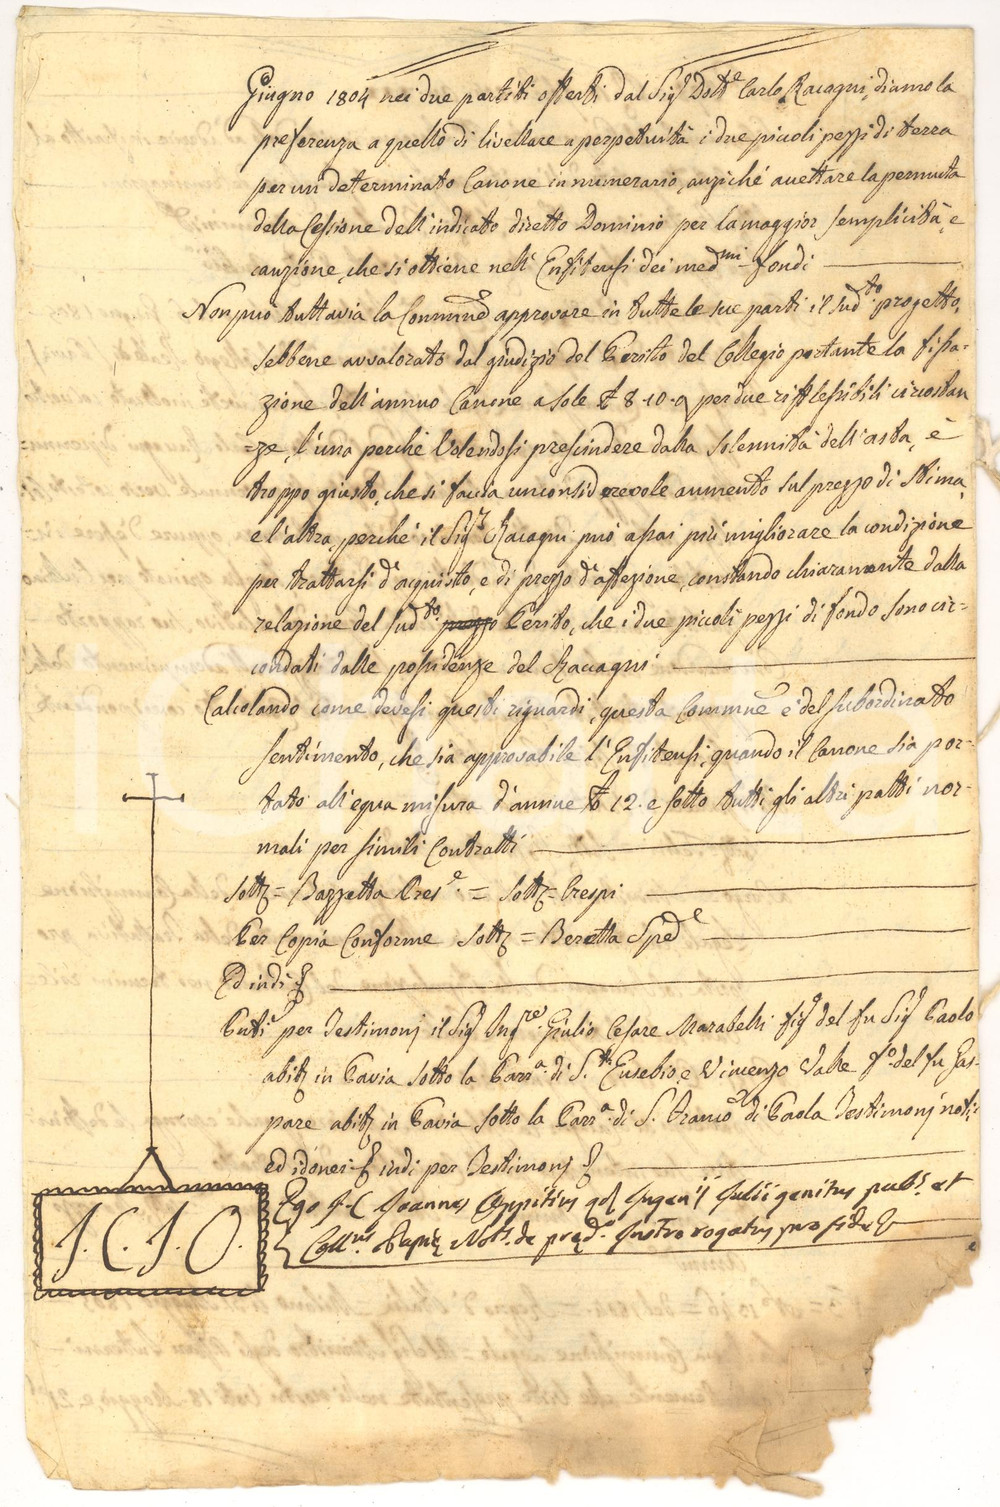 Giugno 1804 nei due partiti offerti dal Sig.r Dott.e Carlo Racagni, diamo la
preferenza a quello di livellare a perpetuità i due piccoli pezzi di terra
per un determinato Canone in numerario, anziché accettare la permuta
della Cessione dell'indicato diretto Dominio per la maggior semplicità, e
cauzione, che si ottiene nell'Enfitensi dei med.mi fondi
Non può tuttavia la Commne approvare in tutte le sue parti il sud.to progetto,
sebbene avvalorato dal giudizio del Perito del Collegio portante la fissa-
zione dell'annuo Canone a sole £ 8-10-9 per due riflessibili circostan
=ze, l'una perché volendosi prescindere dalla solennità dell'asta, è
troppo giusto, che si faccia un considerevole aumento sul prezzo di stima,
e l'altra, perché il Sig.r Racagni può assai più migliorare la condizione
per trattarsi d'acquisto, e di prezzo d'affezione, constando chiaramente dalla
relazione del sud.to prezzo Perito, che i due piccoli pezzi di fondo sono cir=
condati dalle possidenze del Racagni
Calcolando come devesi questi riguardi, questa Commne è del subordinato
sentimento, che sia approvabile l'Enfitensi, quando il Canone sia por-
tato all'equa misura d'annue £ 12. e sotto tutti gli altri patti nor-
mali per simili Contratti
Sott.= Bazzetta Pres.e = Sott.= Crespi
Per Copia Conforme Sott.= Beretta Sped.e
Ed indi
Pnti per Testimonj il Sig.r Ing.re Giulio Cesare Marabelli fig.o del fu Sig.r Paolo
abit. in Pavia sotto la Parr.a di S.t Eusebio, e Vincenzo Valle f.o del fu Gas-
pare abit. in Pavia sotto la Parr.a di S. Franc.o di Paola Testimonj noti
ed idonei indi per Testimonj
Ego J. C. Joannes Oppitius q. Ingenii Julii genitus pub.s et
Coll.us Papiæ Not.s de præd.s Instro rogatus pro fide
J. C. J. O.